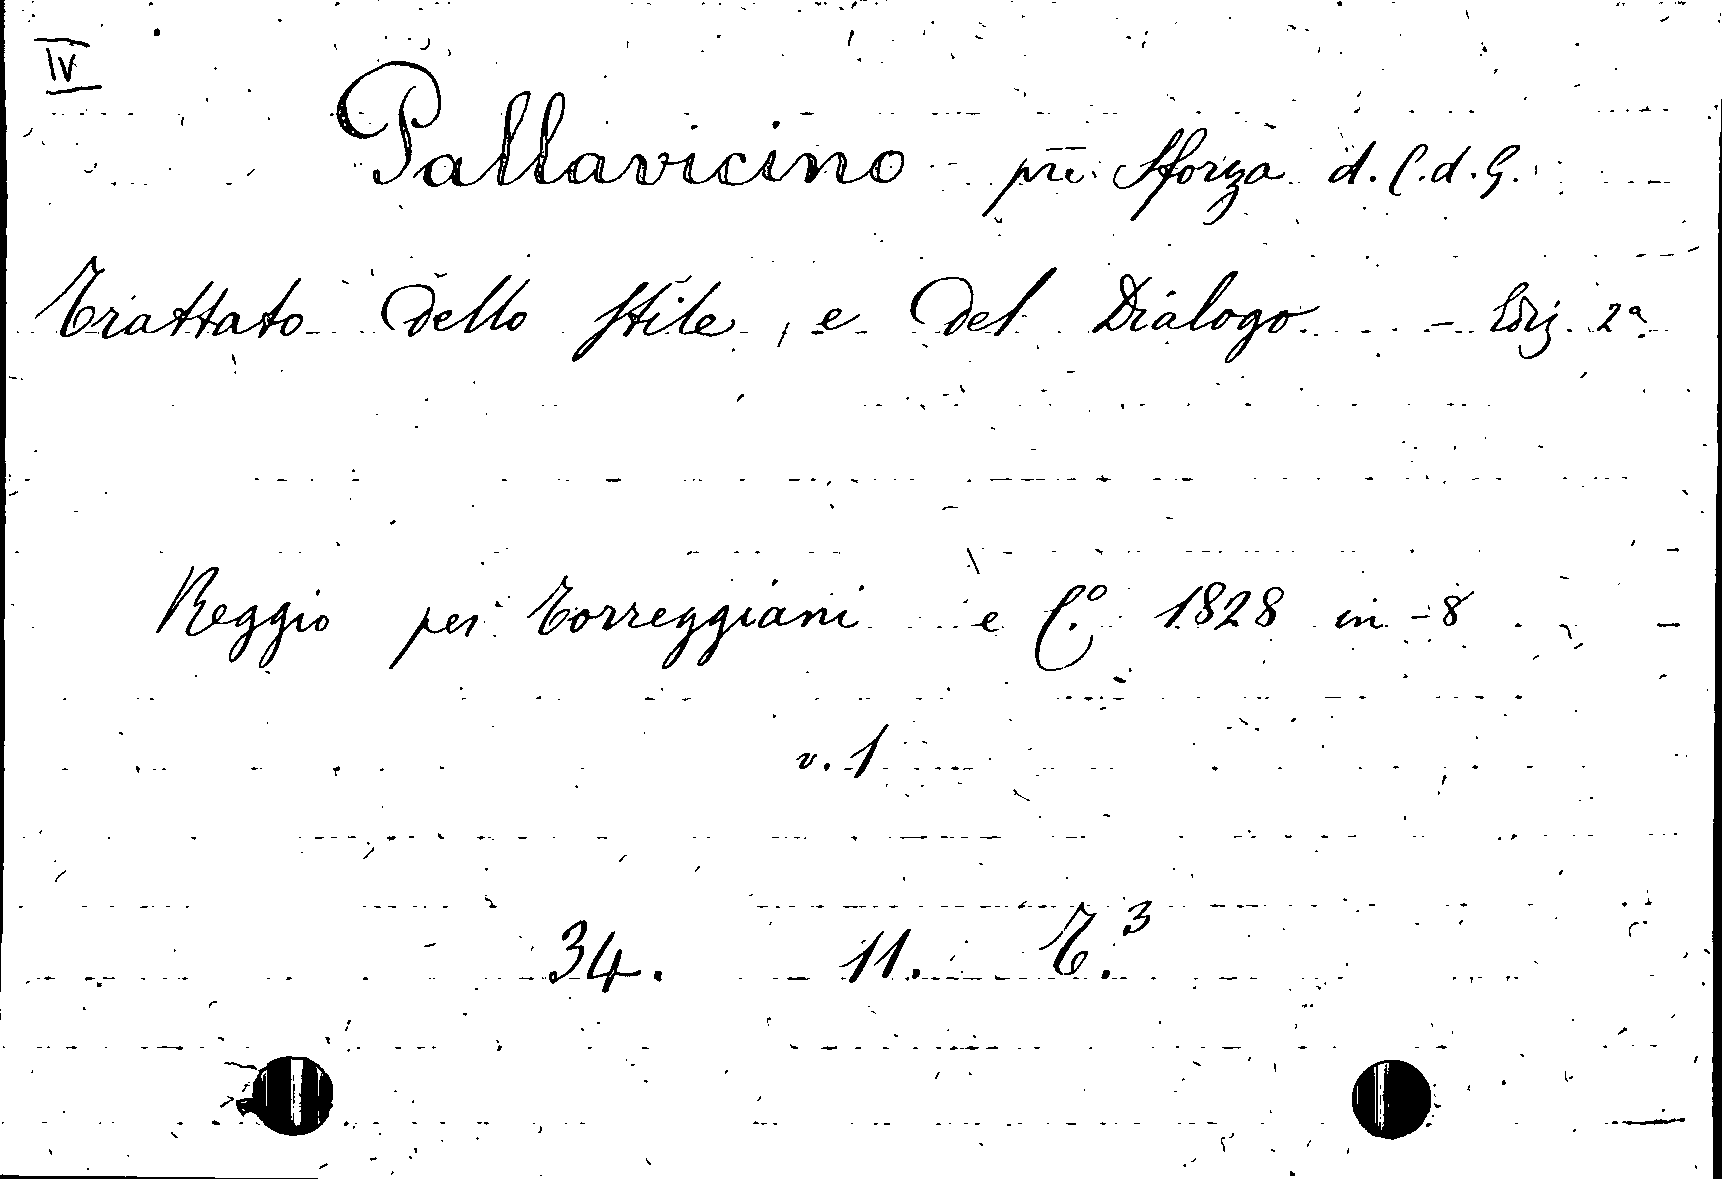 IV
Pallavicino pre. Sforza d. C. d. G.
Trattato dello Stile, e del Dialogo - Ediz. 2ª
Reggio per Torreggiani e C.º 1828 in-8
v. 1
34. 11. T.³